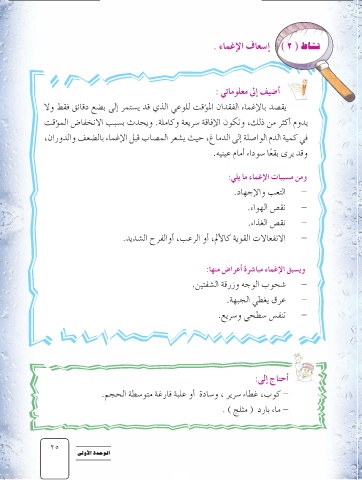 نشاط ( ٢ ) إسعاف الإغماء .
أضيف إلى معلوماتي :
يقصد بالإغماء الفقدان المؤقت للوعي الذي قد يستمر إلى بضع دقائق فقط ولا
يدوم أكثر من ذلك، وتكون الإفاقة سريعة وكاملة. ويحدث بسبب الانخفاض المؤقت
في كمية الدم الواصلة إلى الدماغ، حيث يشعر المصاب قبل الإغماء بالضعف والدوران،
وقد يرى بقعًا سوداء أمام عينيه.
ومن مسببات الإغماء ما يلي:
– التعب والإجهاد.
– نقص الهواء.
– نقص الغذاء.
– الانفعالات القوية كالألم، أو الرعب، أو الفرح الشديد.
ويسبق الإغماء مباشرة أعراض منها:
– شحوب الوجه وزرقة الشفتين.
– عرق يغطي الجبهة.
– تنفس سطحي وسريع.
أحتاج إلى:
– كوب، غطاء سرير، وسادة أو علبة فارغة متوسطة الحجم.
– ماء بارد ( مثلج ) .
الوحدة الأولى
٢٥